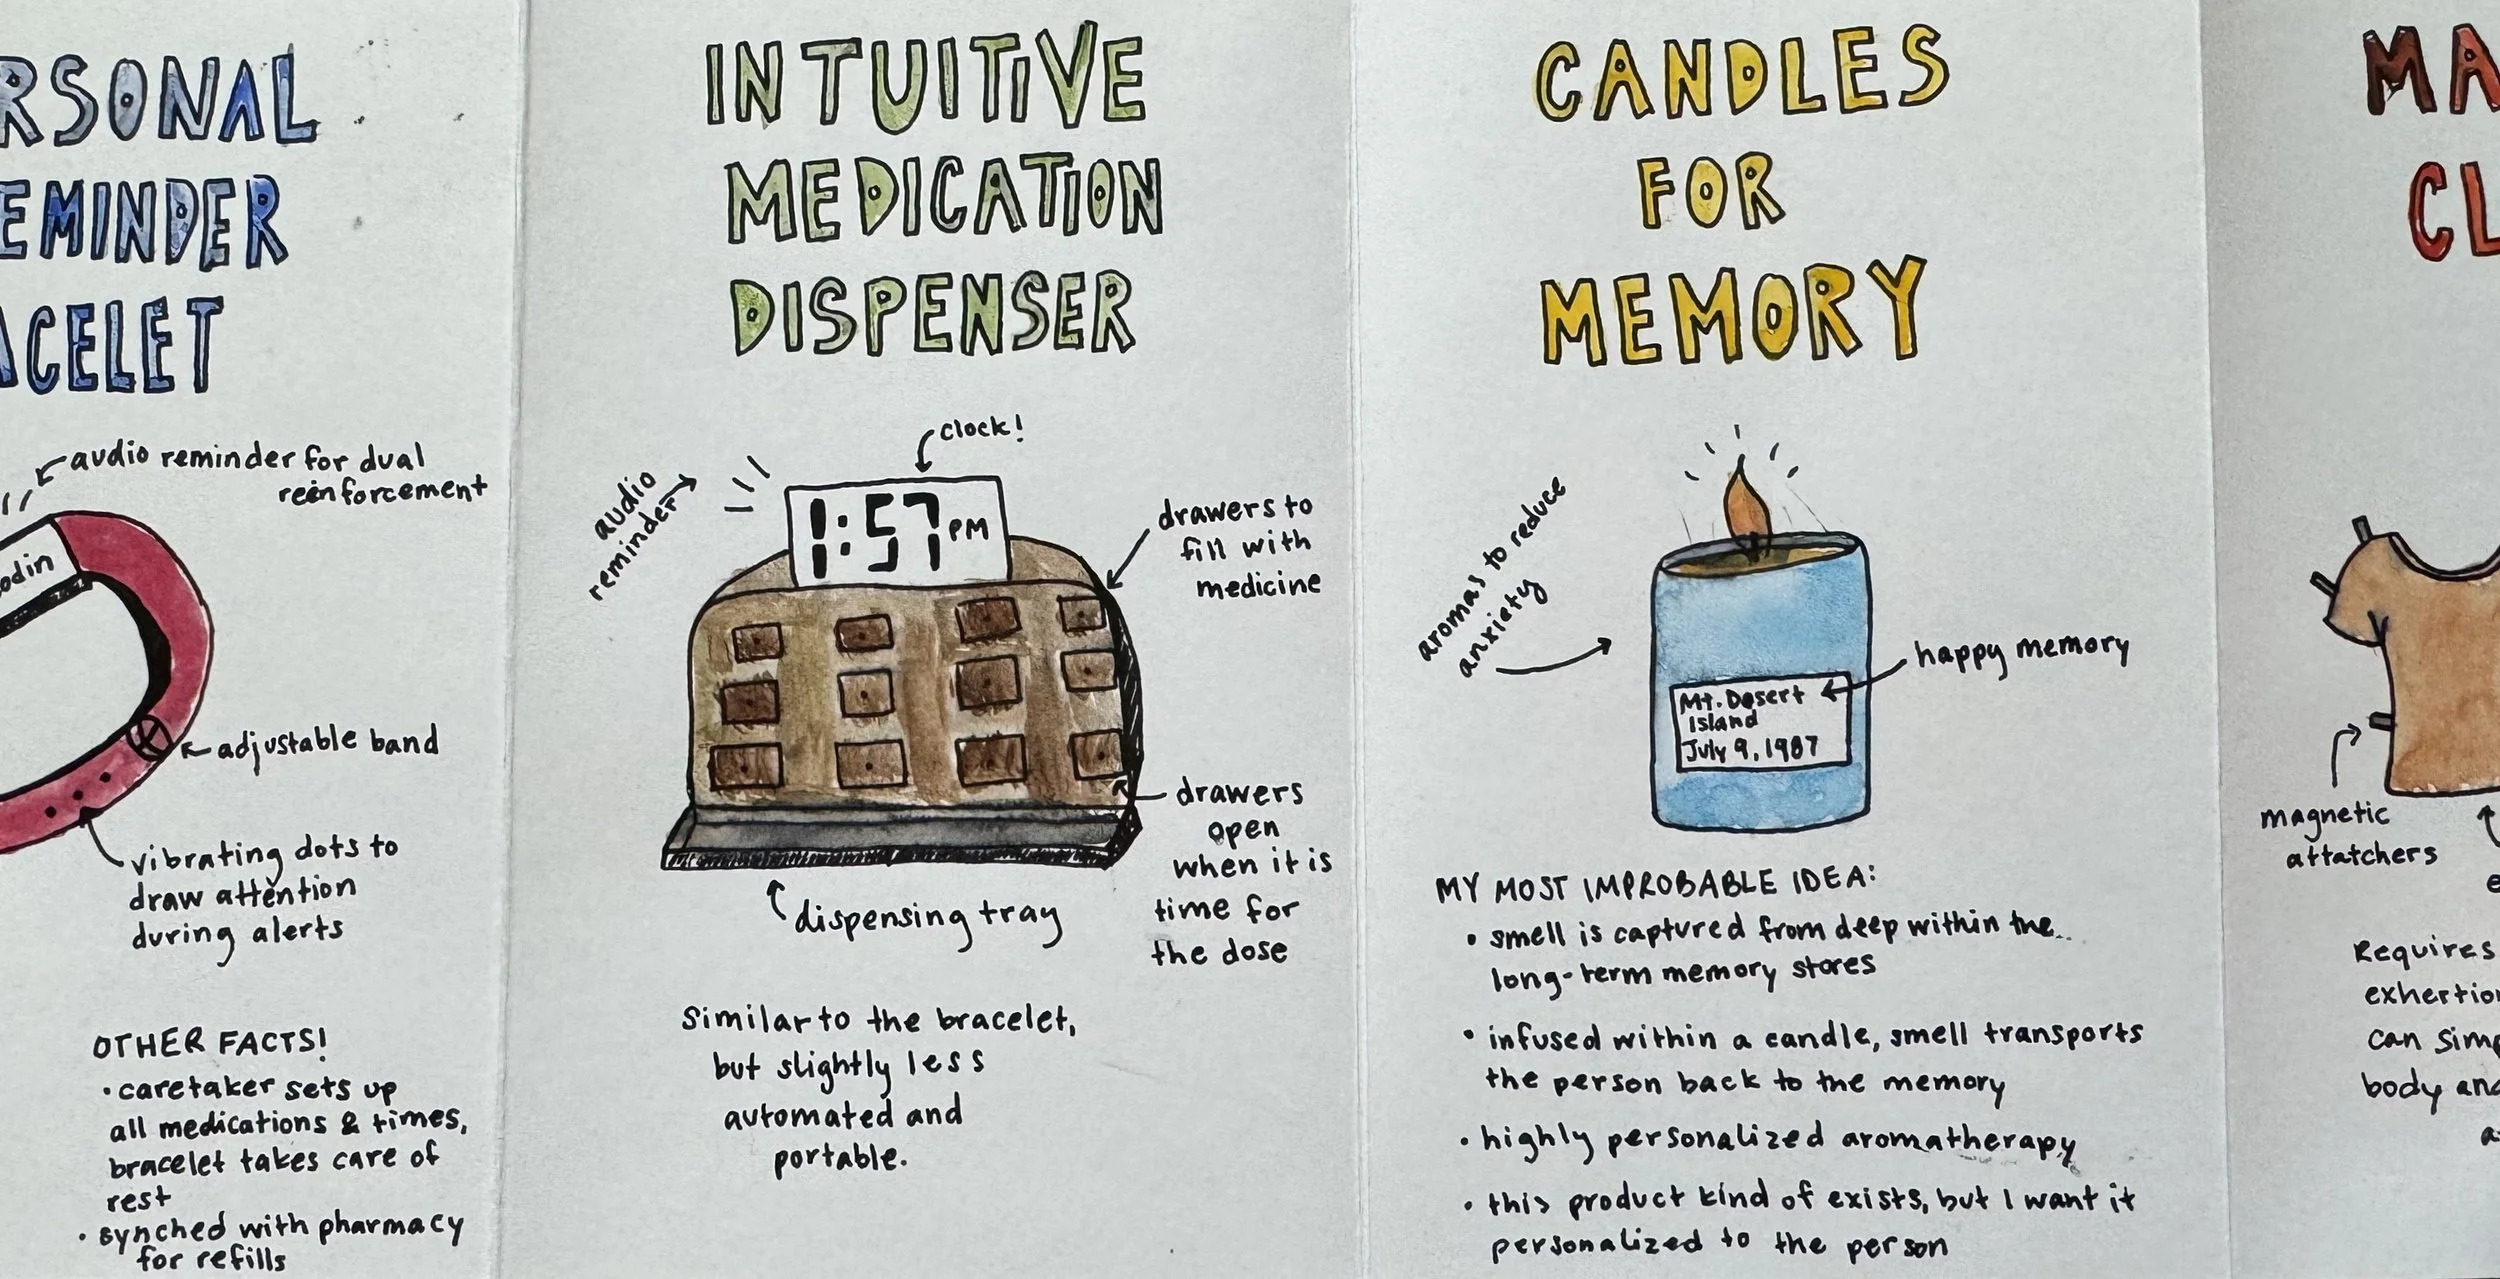 RSONAL
EMINDER
ACELET
audio reminder for dual
reinforcement
odin
adjustable band
vibrating dots to
draw attention
during alerts
OTHER FACTS!
• caretaker sets up
all medications & times,
bracelet takes care of
rest
• synched with pharmacy
for refills
INTUITIVE
MEDICATION
DISPENSER
clock!
audio
reminder
1:57 PM
drawers to
fill with
medicine
drawers
open
when it is
time for
the dose
dispensing tray
Similar to the bracelet,
but slightly less
automated and
portable.
CANDLES
FOR
MEMORY
aromas to reduce
anxiety
happy memory
Mt. Desert
Island
July 9, 1987
MY MOST IMPROBABLE IDEA:
• smell is captured from deep within the
long-term memory stores
• infused within a candle, smell transports
the person back to the memory
• highly personalized aromatherapy
• this product kind of exists, but I want it
personalized to the person
MA
CL
magnetic
attatchers
e
Requires
exhertion
can simp
body and
a